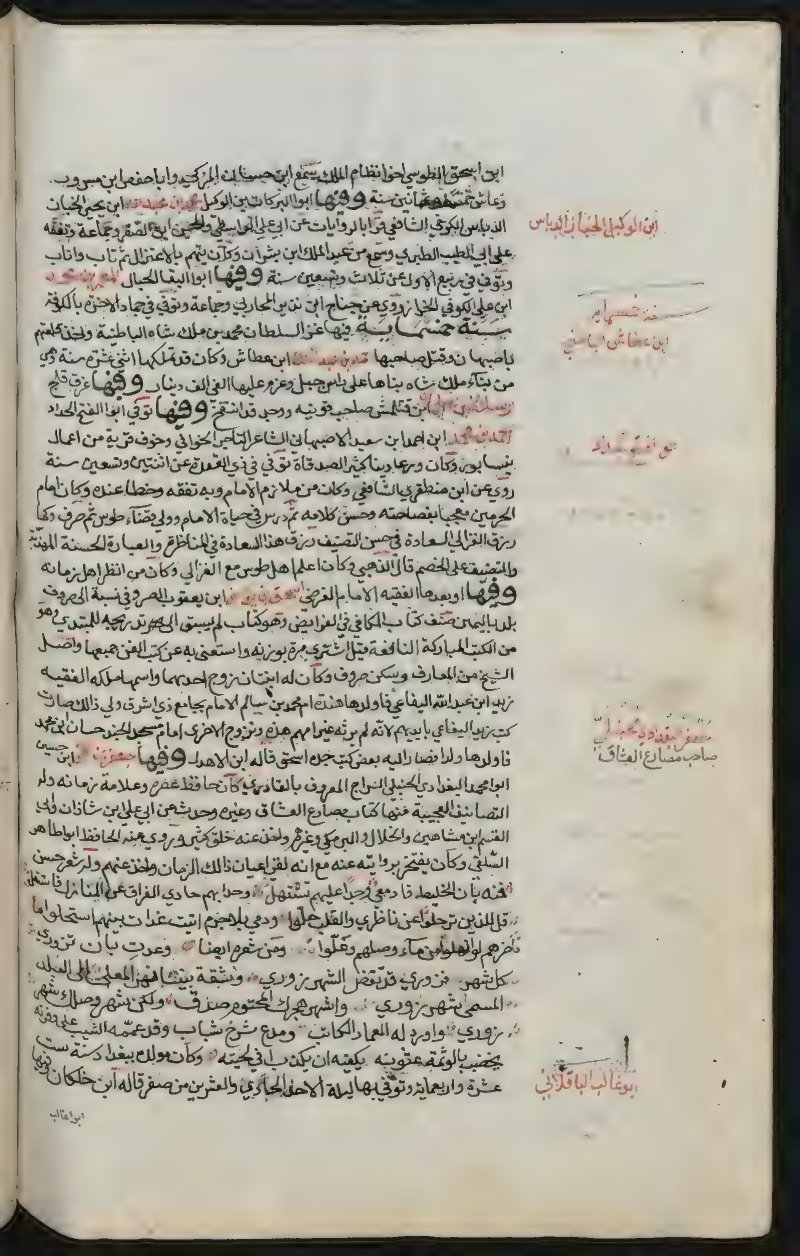 ابن اسحق الطوسي اخو نظام الملك سمع ابن حسنا المزكي وابا حفص ابن مسرور
وعاش خمسا وثمانين سنة وفيها ابو البركات بن الوكيل محمد بن عبد الله ابن يحيى الخباز
الدباس الكرخي الشافعي قرا بالروايات عن ابي على الواسطي والحسن ابن الصقر وجماعة وتفقه
على ابي الطيب الطبري وسمع من عبد الملك ابن بشران وكان يتهم بالاعتزال ثم تاب واناب
وتوفي في ربيع الاول عن ثلاث وتسعين سنة وفيها ابو البقا الحبال المعمر بن محمد
ابن على الكوفي الخزاز روى عن جناح ابن نذير المحاربي وجماعة وتوفي في جماد الاخرة بالكوفة
سنة خمسماية فيها غزا السلطان محمد بن ملك شاه الباطنية واخذ قلعتهم
باصبهان وقتل صاحبها احمد بن عبد الملك ابن عطاش وكان قد تملكها اثنى عشرة سنة وهي
من بناء ملك شاه بناها على راس جبل وغرم عليها الفي الف دينار وفيها غرق قلج
ارسلان بن سليمان ابن قتلمش صاحب قونيه ووجد قد انتفخ وفيها توفي ابوا الفتح الحداد
احمد بن محمد ابن احمد ابن سعيد الاصبهاني الشاعر التاجر الخوافي وخوف قرية من اعمال
نيسابور وكان ورعا دينا كثير الصدقاة توفي في ذي القعدة عن اثنتين وتسعين سنة
روى عن ابن منطقري الشافعي وكان من ملازم الامام وبه تفقه وحظا عنده وكان امام
الحرمين معجبا بفصاحته وحسن كلامه ثم درس في حياة الامام وولي قضاء طوس ثم صرف وكما
رزق الغزالي السعادة في حسن التصنيف رزق هذا السعادة في المناظرة والعبارة الحسنة المهذبة
والتضييق على الخصم قال الذهبي وكان اعلم اهل طوس مع الغزالي وكان من انظر اهل زمانه
وفيها او بعدها الفقيه الامام الفرضي اسحق بن يوسف ابن يعقوب الصروفي نسبة الى صروف
بلد باليمن صنف كتاب الكافي في الفرايض وهو كتاب لم يسبق الى مثله تدريجه للمبتدي وهو
من الكتب المباركة النافعة قيل اشترى مرة بوزنه واستغنى به عن كتب الفن جميعها واصل
الشيخ من المعارف وسكن صروف وكان له ابنتان زوج احدهما واسمها ملكه الفقيه
زيد ابن عبد الله اليفاعي فاولدها هنده ام محمد بن سالم الامام بجامع ذي اشرق ولى ذالك صارت
كتب زيد اليفاعي بايديهم لانه لم يرثه غير امهم هذه وتزوج الاخرى امام مسجد الجند حسان ابن محمد
فاولدها ولدا فصار اليه بعض كتب جده اسحق قاله ابن الاهدل وفيها جعفر بن احمد ابن حسين
ابو محمد البغدادي الحنبلي السراج المعروف بالقاري كان حافظ عصره وعلامة زمانه وله
التصانيف العجيبة منها كتاب مصارع العشاق وغيره وحدث عن ابي على ابن شاذان وابي
القسم ابن شاهين والخلال والبرمكي وغيرهم واخذ عنه خلق كثير وروى عنه الحافظ ابو طاهر
السلفي وكان يفتخر بروايته عنه مع انه لقي اعيان ذالك الزمان واخذ عنهم وله شعر حسن
فمنه بان الخليط فادمعي وجدا عليهم تستهل وحدا بهم حادي الفراق عن المنازل فاستقلوا
قل للذين ترحلوا عن ناظري والقلب حلوا ودمي بلا جرم اتيت غداة بينهم استحلوا ما
ضرهم لو انهلوا من ماء وصلهم وعلوا ومن شعره ايضا وعدت بان تزوري
كل شهر فزوري قد تقضى الشهر زوري وشقة بيننا نهر المعلى الى البلد
المسمى شهر زوري واشهر هجرك المحتوم صدق ولكن شهر وصلك شهر
زوري واورد له العماد الكاتب ومدع شرخ شباب وقد عممه الشيب على وفرته
يخضب بالوشمة عثنونه يكفيه ان يكذب في لحيته وكان مولده ببغداد سنة ست
عشرة واربعماية وتوفي بها ليلة الاحد الحادي والعشرين من صفر قاله ابن خلكان وفيها
ابو اغالب
ابن الوكيل الخباز الدباس
سنة خمسماية
ابن عطاش الباطني
ابو الفتح الحداد
جعفر بغدادي حنبلي
صاحب مصارع العشاق
ابو غالب الباقلاني